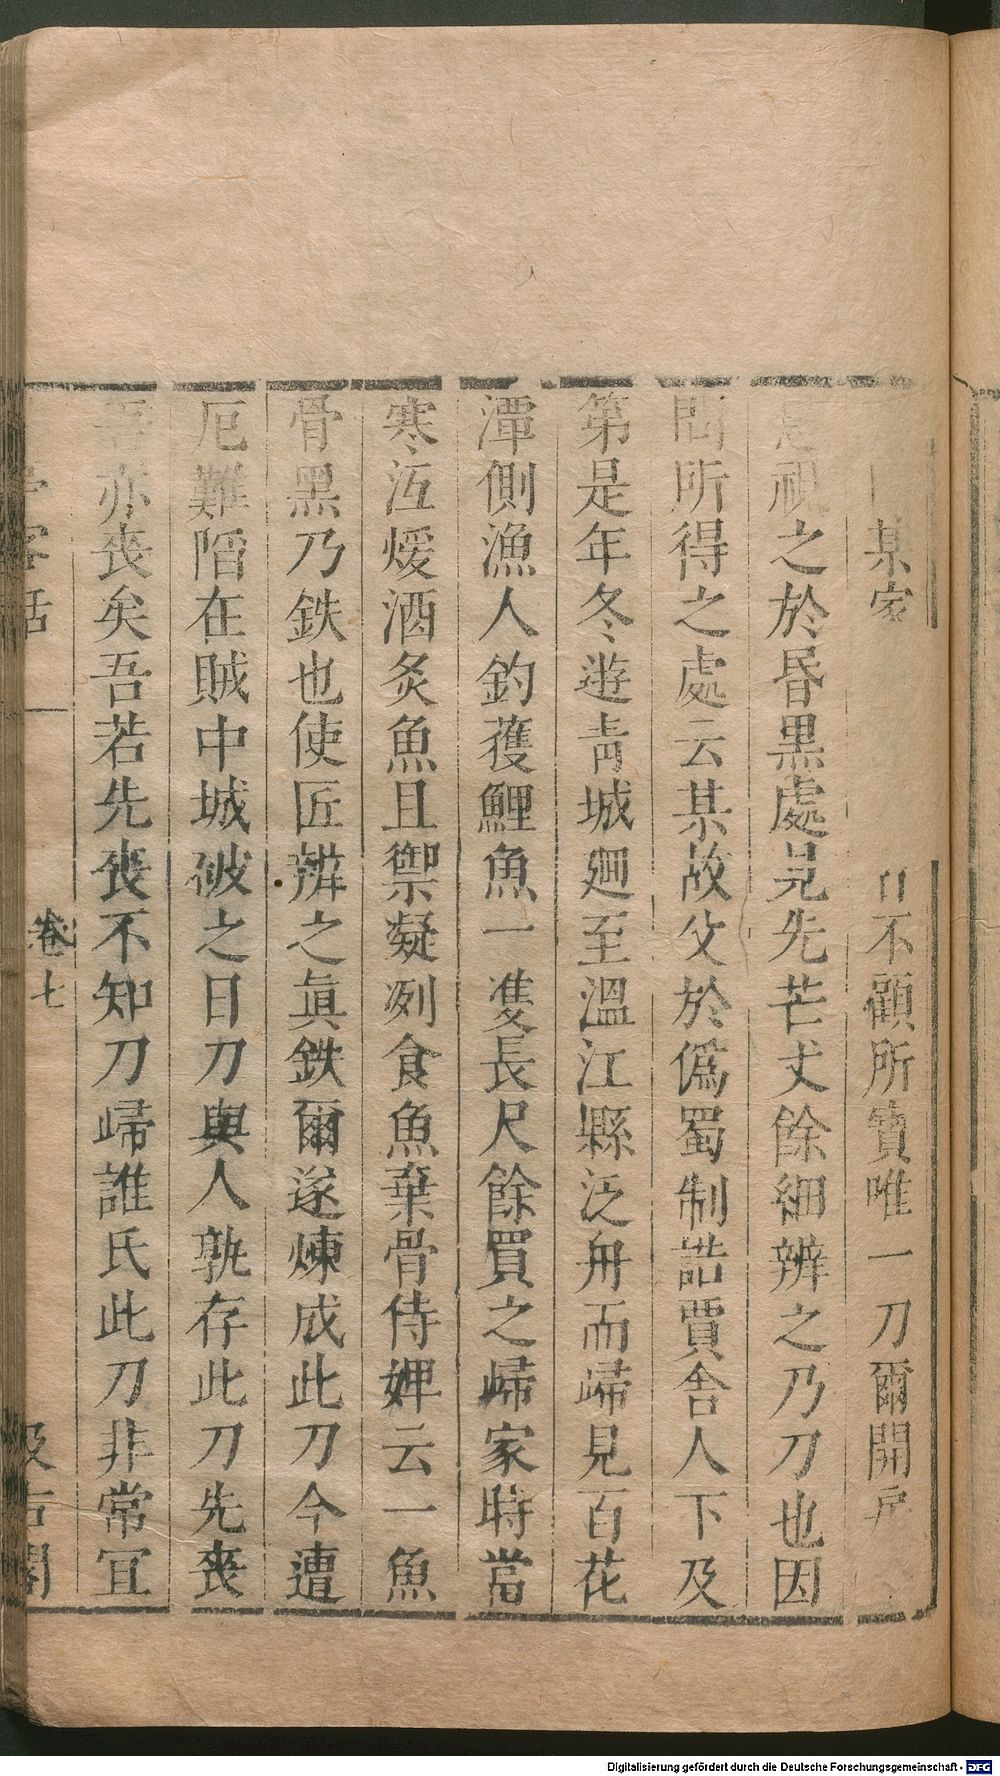 某家 不顧所寶唯一刀爾開
視之於昏黒處見先芒丈餘細辨之乃刀也因
問所得之處云某故父於僞蜀制誥賈舍人下及
第是年冬遊靑城廻至溫江縣泛舟而歸見百花
潭側漁人釣獲鯉魚一隻長尺餘買之歸家時當
寒沍煖酒炙魚且禦凝冽食魚棄骨侍婢云一魚
骨黑乃鉄也使匠辨之眞鉄爾遂煉成此刀今遭
厄難陷在賊中城破之日刀與人孰存此刀先喪
吾亦喪矣吾若先喪不知刀歸誰氏此刀非常宜
客話 卷七 汲古閣
Digitalisierung gefördert durch die Deutsche Forschungsgemeinschaft - DFG